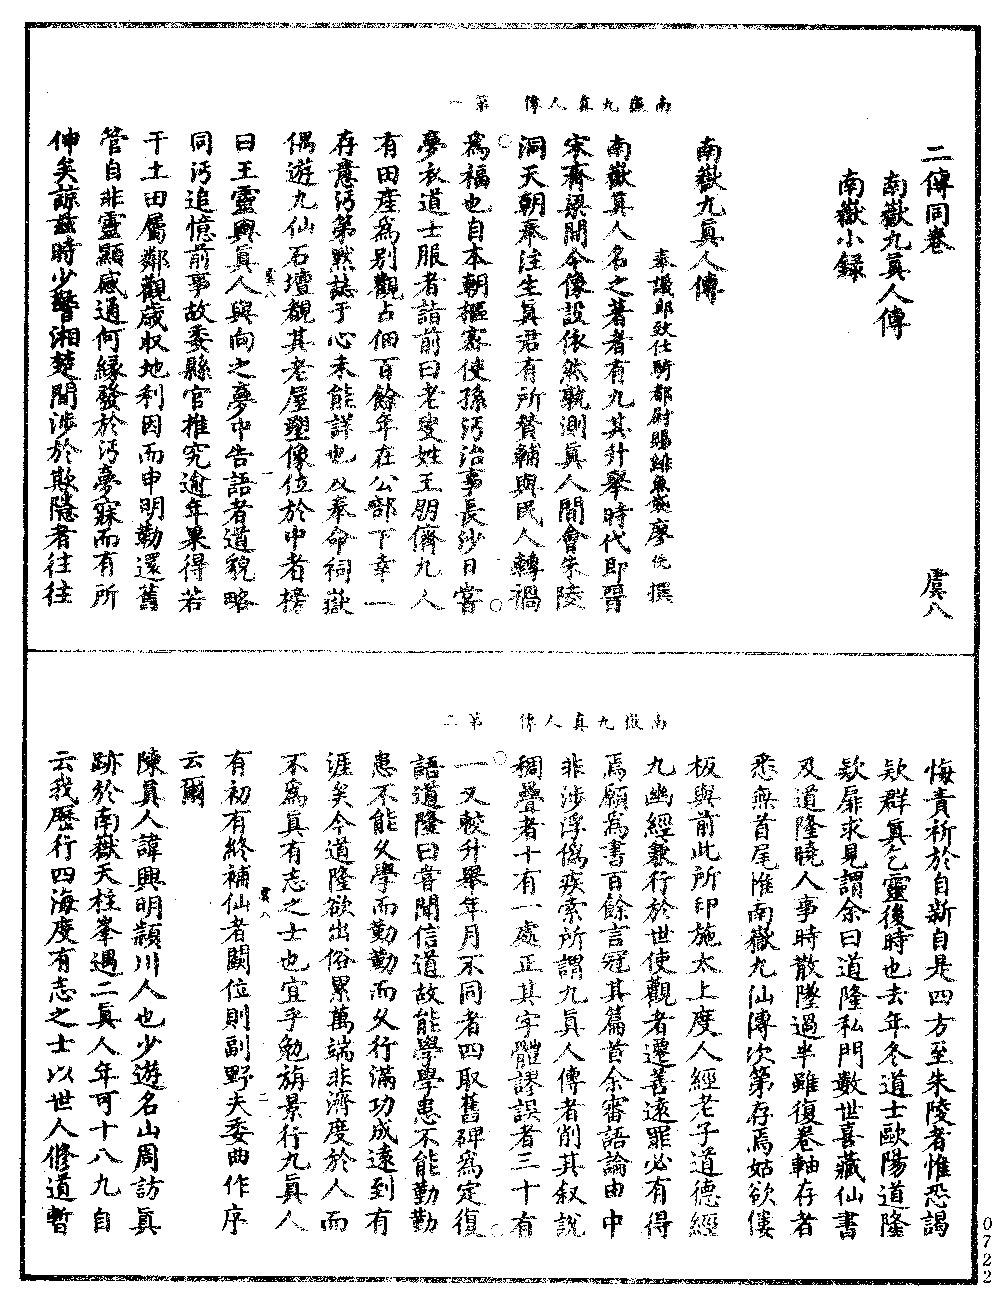 二傳同卷
南嶽九真人傳
南嶽小録
虞八
南嶽九真人傳
奉議郎致仕騎都尉賜緋魚袋廖侁撰
南嶽真人名之著者有九其升舉時代即晉
宋齊梁間今像設依然孰測真人間會朱陵
洞天朝奉注生真君有所贊輔與民人轉禍
爲福也自本朝樞密使孫沔治事長沙日嘗
夢衣道士服者詣前曰老叟姓王朋儕九人
有田産爲別觀占佃百餘年在公部下幸一
存意沔第黙誌于心未能詳也及奉命祠嶽
偶遊九仙石壇覩其老屋塑像位於中者榜
曰王靈輿真人與向之夢中告語者道貌略
同沔追憶前事故委縣官推究逾年果得若
干土田屬鄰觀歳収地利因而申明勒還舊
管自非靈顯感通何緣發於沔夢寐而有所
伸矣諒茲時少警湘楚間涉於欺隱者往往
南嶽九真人傳 第一
虞八 一
悔責祈於自新自是四方至朱陵者惟恐謁
欵群真乞靈後時也去年冬道士歐陽道隆
欵扉求見謂余曰道隆私門數世喜藏仙書
及道隆曉人事時散墜過半雖復卷軸存者
悉無首尾惟南嶽九仙傳次第存焉姑欲僂
板與前此所印施太上度人經老子道德經
九幽經兼行於世使觀者遷善遠罪必有得
焉願爲書百餘言冠其篇首余審語論由中
非涉浮僞疾索所謂九真人傳者削其叙說
稠疊者十有一處正其字體謬誤者三十有
一又較升舉年月不同者四取舊碑爲定復
語道隆曰嘗聞信道故能學學患不能勤勤
患不能久學而勤勤而久行滿功成遠到有
涯矣今道隆欲出俗累萬端非濟度於人而
不爲真有志之士也宜乎勉旃景行九真人
有初有終補仙者闕位則副野夫委曲作序
云爾
陳真人諱興明頴川人也少遊名山周訪真
跡於南嶽天柱峯遇二真人年可十八九自
云我歷行四海度有志之士以世人修道暫
南嶽九真人傳 第二
虞八 二
0722